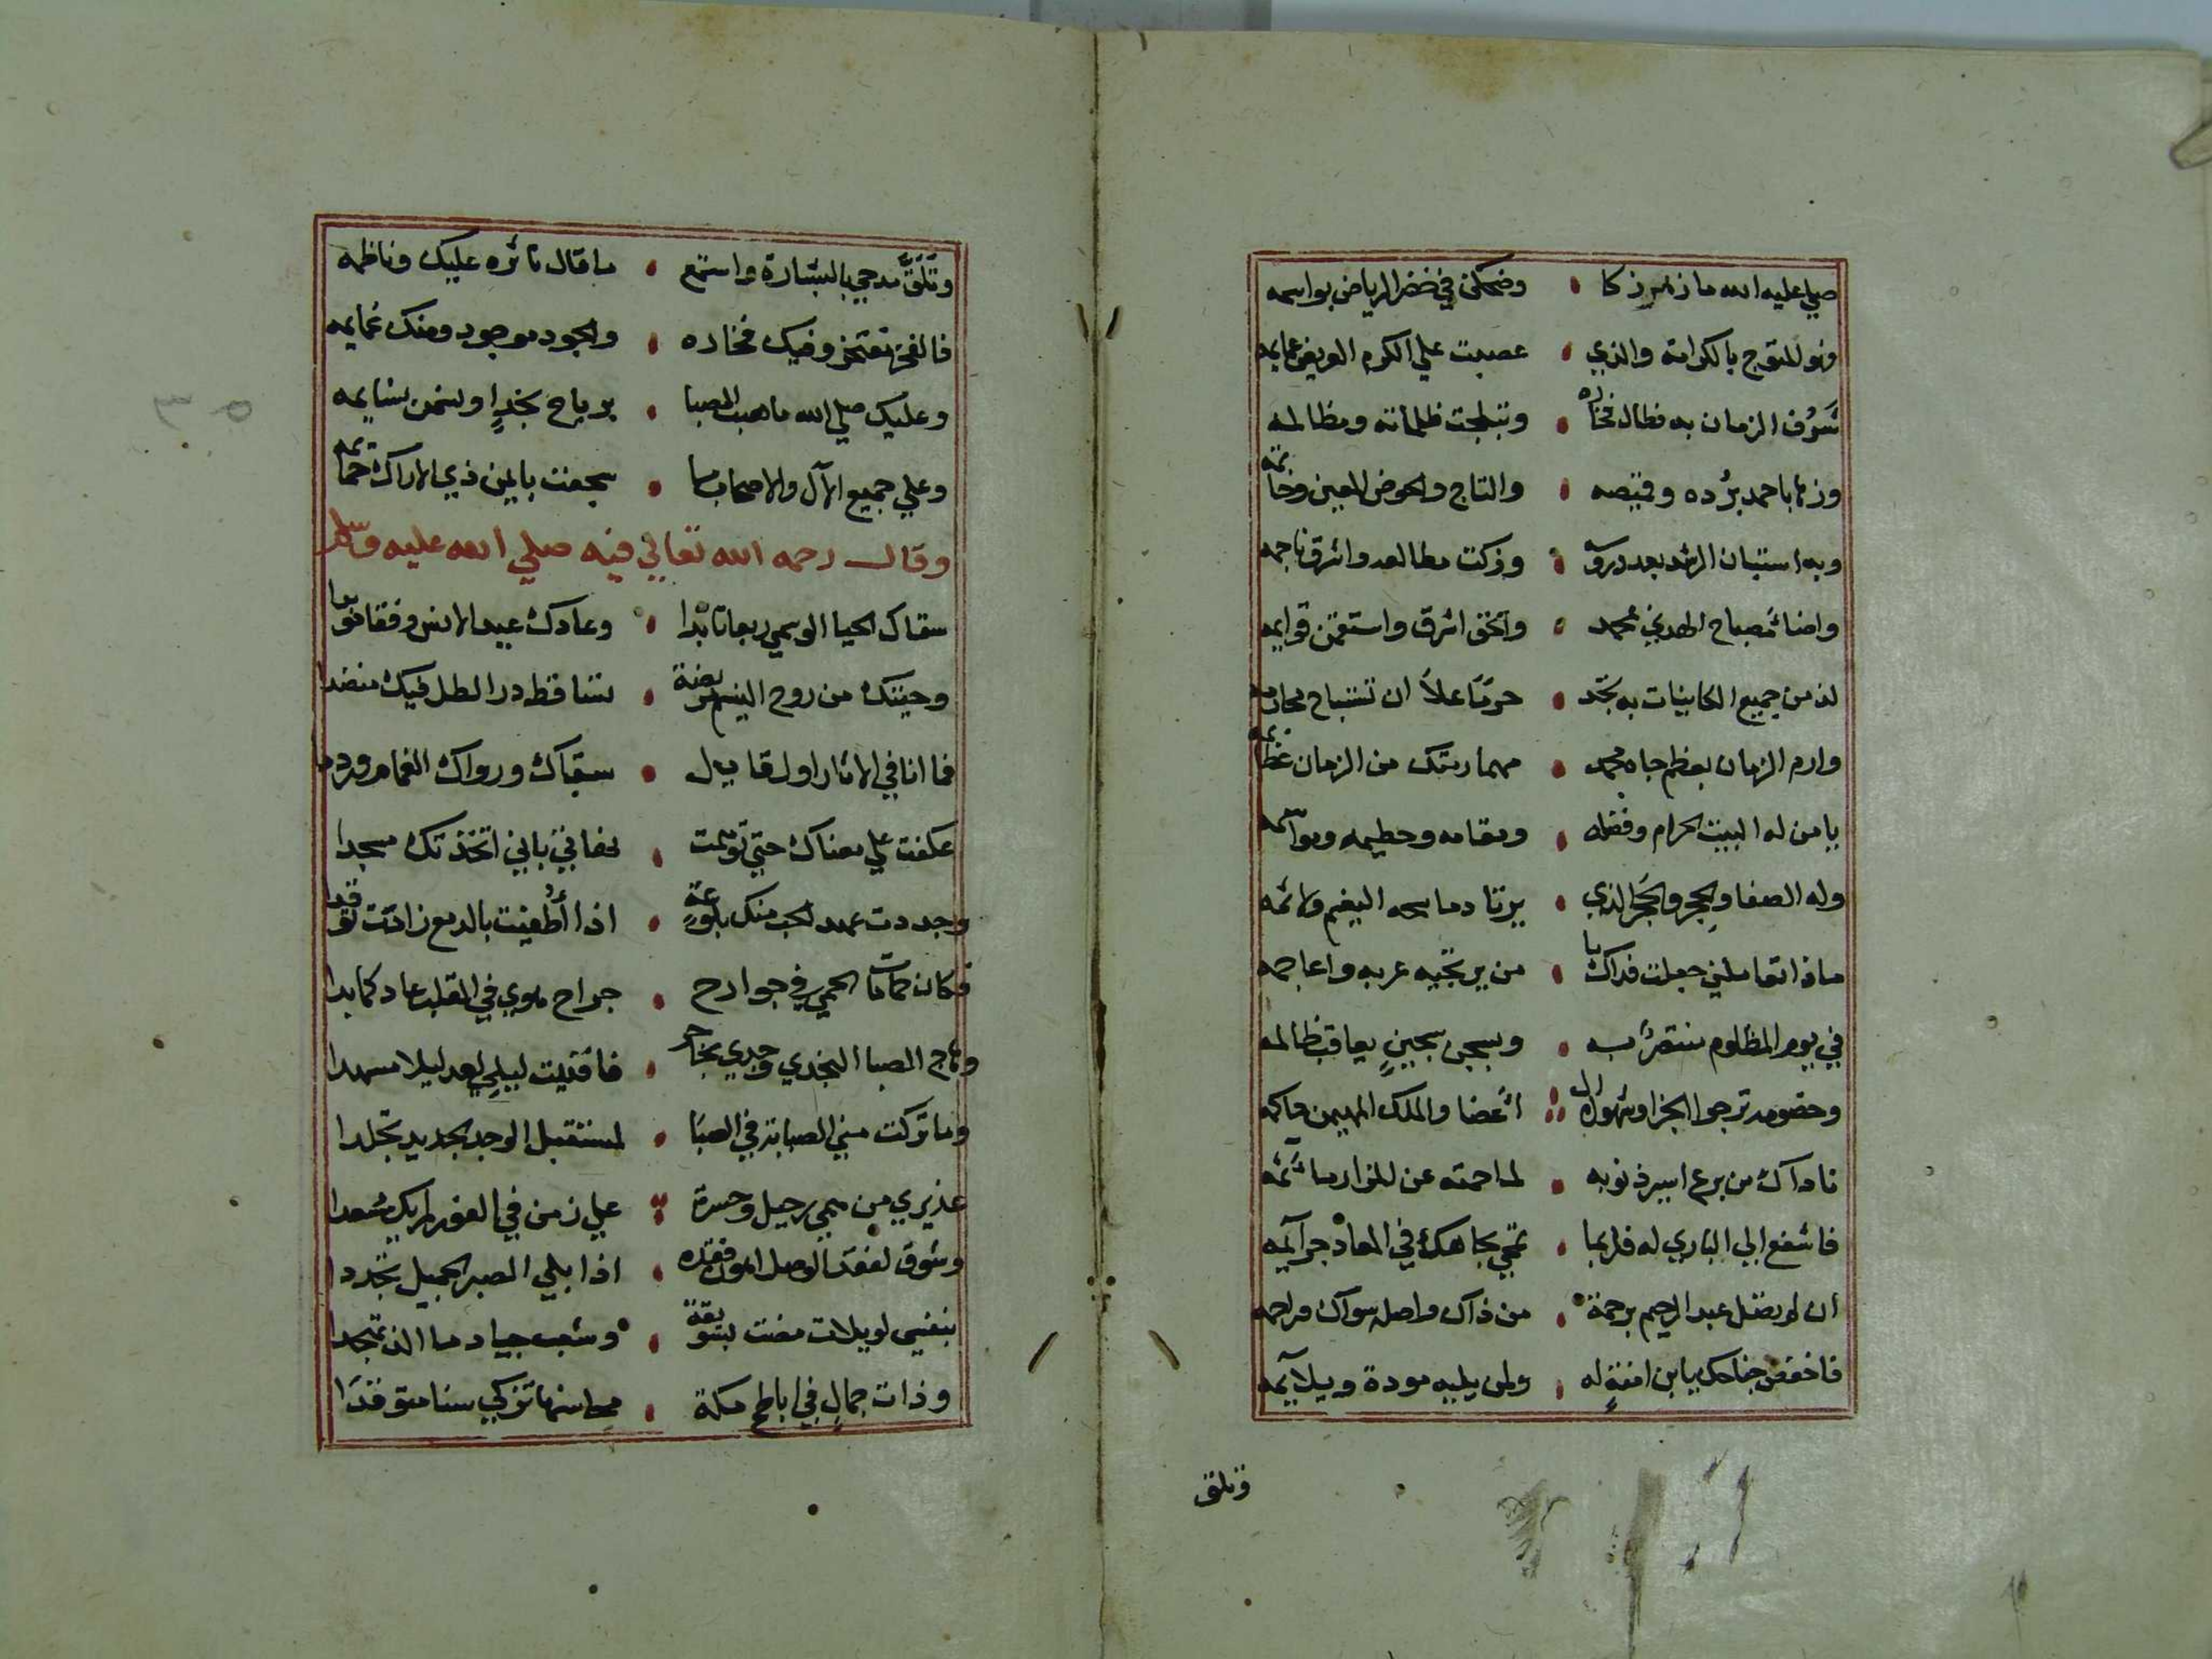 صلي عليه الله ما زهر زكا • وضحكن في خضر الرياض بواسمه
وهو المتوج بالكرامة والذي • عصبت علي الكرم العريض عمايمه
شرف الزمان به فطال فخاره • وتبلجت ظلماته ومظالمه
وزها باحمد برده وقميصه • والتاج والحوض المعين وخاتمه
وبه استبان الرشد بعد دروسه • وزكت مطالعه واشرق ناجمه
واضاء مصباح الهدي بمحمد • والحق اشرق واستقمن قوايمه
لذ من جميع الكاينات به تجد • حرما علا ان تستباح محارمه
وارم الزمان بعظم جاه محمد • مهما رمتك من الزمان عظايمه
يا من له البيت الحرام وفضله • ومقامه وحطيمه ومواسمه
وله الصفا والحجر والحجر الذي • يرتاد ماسحه النعيم ولاثمه
ماذا تعاملني جعلت فداك يا • من يرتجيه عربه واعاجمه
في يوم المظلوم منتصر به • وبسجن سجين يعاقب ظالمه
وخصومه ترجوا الجزا وشهوده ال • اعضا والملك المهيمن حاكمه
ناداك من برع اسير ذنوبه • لما حمته عن المزار مآثمه
فاشفع الي الباري له فلربما • تمحي بجاهك في المعاد جرايمه
ان لم يصل عبد الرحيم برحمة • من ذاك واصله سواك وراحمه
فاخفض جناحك يا ابن امنة له • ولمن يليه مودة ويلايمه
وتلق
وتلق مدحي بالبشارة واستمع • ما قال ناثره عليك وناظمه
فالفخر مفتخر وفيك فخاره • والجود موجود ومنك غمايمه
وعليك صلي الله ما هب الصبا • برياح نجد او سمن نسايمه
وعلي جميع الآل والاصحاب ما • سجعت بايمن ذي الاراك حمايمه
وقال رحمه الله تعالي فيه صلي الله عليه وسلم
سقاك الحيا الوسمي ربعا تابدا • وعادك عيد الانس وفقا
وحيتك من روح النسيم مريضة • تساقط در الطل فيك منضدا
فما انا في الاثار اول قايل • سقاك ورواك الغمام ورددا
عكفت علي مغناك حتي توسمت • بانني اتخذتك مسجدا
وجددت عهد الحب منك بلوعة • اذا أطفيت بالدمع زادت توقدا
فكان حمامات الحمي في جوارح • جراح هوي في القلب عاد كما بدا
وهاج الصبا النجدي وجدي بحاجر • فافنيت ليلي بعد ليلا مسهدا
وما تركت مني الصبابة في الصبا • لمستقبل الوجد الجديد تجلدا
عذيري من حي رحيل وحسرة • علي زمن في الغور لم يك مسعدا
وشوق لفقد الوصل اهون فقده • اذا بلي الصبر الجميل تجددا
بنفسي لويلات مضت بسويقة • وشعب جياد ما الذ تهجدا
وذات جمال في اباطح مكة • محاسنها تزكي سنا متوقدا